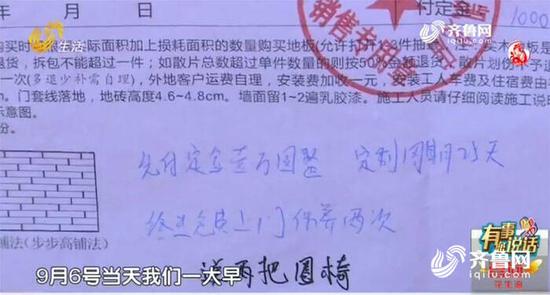 年 月 日 付定金 1000
生活
销售专用
齐鲁网
购买时 际面积加上损耗面积的数量购买地板(允许打开1-3件抽
退货,拆包不能超过一件;如散片总数超过单件数量的则按50%金额退货,散片划伤不予退
一次(多退少补需自理),外地客户运费自理,安装费加收一元,安装工人车费及住宿费由
。门套线落地,地砖高度4.6~4.8cm。墙面留1~2遍乳胶漆。施工人员请仔细阅读施工说
示意图。
份。
先付定金壹万圆整 定制周期25天
终生免费上门保养两次
铺法(步步高铺法)
送两把圈椅
9月6号当天我们一大早
有事您说话
生活
齐鲁网